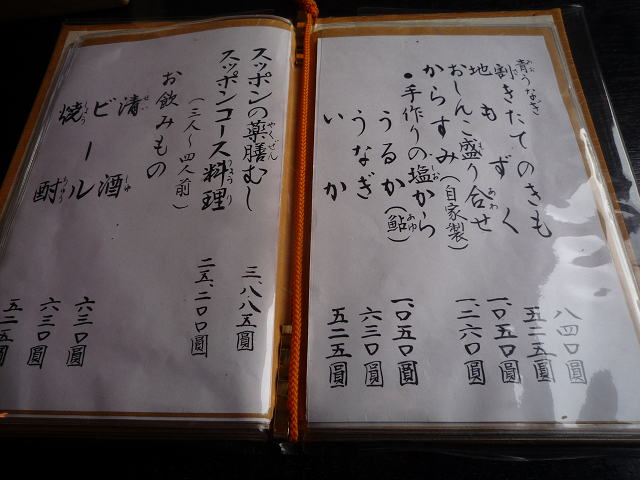 青うなぎ
割きたてのきも 八四〇圓
地もずく 五二五圓
おしんこ盛り合せ 一、〇五〇圓
からすみ(自家製) 一、二六〇圓
●手作りの塩から
うるか(鮎) 一、〇五〇圓
うなぎ 六三〇圓
いか 五二五圓
スッポンの薬膳むし 三、八八五圓
スッポンコース料理 二五、二〇〇圓
(三人〜四人前)
お飲みもの
清酒 六三〇圓
ビール 六三〇圓
焼酎 五二五圓